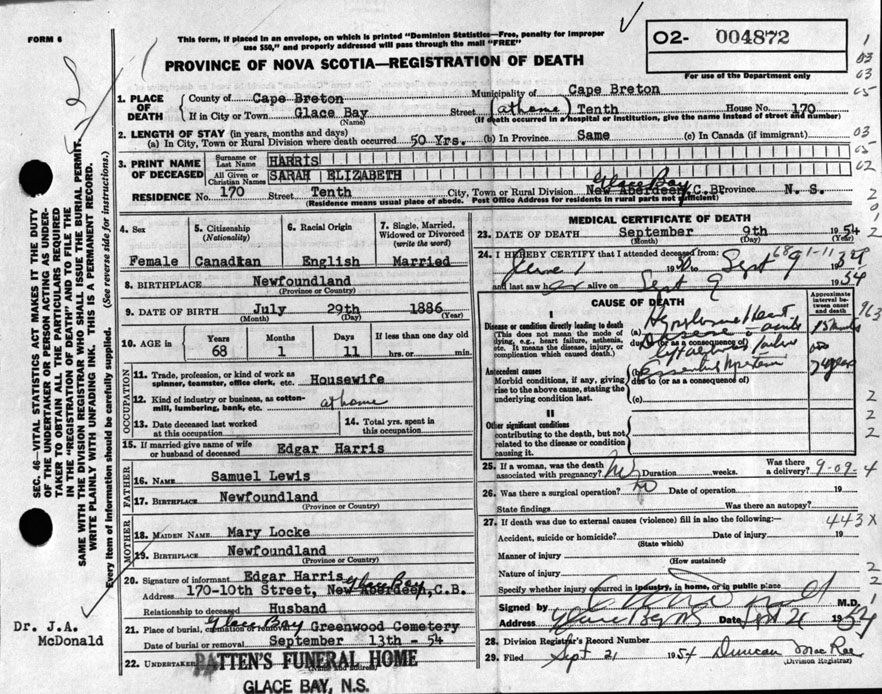 FORM 6
This form, if placed in an envelope, on which is printed "Dominion Statistics—Free, penalty for improper
use $50," and properly addressed will pass through the mail "FREE"
02- 004872
For use of the Department only
PROVINCE OF NOVA SCOTIA—REGISTRATION OF DEATH
1. PLACE OF DEATH County of Cape Breton Municipality of Cape Breton
If in City or Town Glace Bay (Name) Street (at home) Tenth House No. 170
(If death occurred in a hospital or institution, give the name instead of street and number)
2. LENGTH OF STAY (in years, months and days)
(a) In City, Town or Rural Division where death occurred 50 Yrs. (b) In Province Same (c) In Canada (if immigrant)
3. PRINT NAME OF DECEASED Surname or Last Name HARRIS
All Given or Christian Names SARAH ELIZABETH
RESIDENCE No. 170 Street Tenth City, Town or Rural Division Glace Bay New Aberdeen, C.B. Province N. S.
(Residence means usual place of abode. Post Office Address for residents in rural parts not sufficient)
4. Sex
Female
5. Citizenship (Nationality)
Canadian
6. Racial Origin
English
7. Single, Married, Widowed or Divorced (write the word)
Married
8. BIRTHPLACE Newfoundland
(Province or Country)
9. DATE OF BIRTH July 29th 1886
(Month) (Day) (Year)
10. AGE in Years Months Days If less than one day old
68 1 11 hrs. or min.
OCCUPATION
11. Trade, profession, or kind of work as
spinner, teamster, office clerk, etc. Housewife
12. Kind of industry or business, as cotton-
mill, lumbering, bank, etc. at home
13. Date deceased last worked
at this occupation
14. Total yrs. spent in
this occupation
15. If married give name of wife
or husband of deceased Edgar Harris
FATHER
16. NAME Samuel Lewis
17. BIRTHPLACE Newfoundland
(Province or Country)
MOTHER
18. MAIDEN NAME Mary Locke
19. BIRTHPLACE Newfoundland
(Province or Country)
20. Signature of informant Edgar Harris
Address 170-10th Street, New Aberdeen, C.B. Glace Bay
Relationship to deceased Husband
21. Place of burial, cremation or removal Glace Bay Greenwood Cemetery
Date of burial or removal September 13th - 54
22. UNDERTAKER PATTEN'S FUNERAL HOME
(Name and address)
GLACE BAY, N.S.
MEDICAL CERTIFICATE OF DEATH
23. DATE OF DEATH September 9th 1954
(Month) (Day) (Year)
24. I HEREBY CERTIFY that I attended deceased from:
June 1 19 to Sept 9 1954
and last saw her alive on Sept 9 1954
CAUSE OF DEATH
Approximate interval between onset and death
I
Disease or condition directly leading to death
(This does not mean the mode of
dying, e.g., heart failure, asthenia,
etc. It means the disease, injury, or
complication which caused death.)
(a)
due to (or as a consequence of)
Antecedent causes
Morbid conditions, if any, giving
rise to the above cause, stating the
underlying condition last.
(b)
due to (or as a consequence of)
(c)
II
Other significant conditions
contributing to the death, but not
related to the disease or condition
causing it.
25. If a woman, was the death
associated with pregnancy? No Duration weeks. Was there a delivery? 9-09
26. Was there a surgical operation? No Date of operation 19
State findings Was there an autopsy?
27. If death was due to external causes (violence) fill in also the following:— 443X
Accident, suicide or homicide? Date of injury 19
(State which)
Manner of injury
(How sustained)
Nature of injury
Specify whether injury occurred in industry, in home, or in public place
Signed by M.D.
Address Glace Bay NS Date Sept 21 1954
28. Division Registrar's Record Number
29. Filed Sept 21 1954 Duncan MacRae
(Division Registrar)
SEC. 46—VITAL STATISTICS ACT MAKES IT THE DUTY
OF THE UNDERTAKER OR PERSON ACTING AS UNDER-
TAKER TO OBTAIN ALL THE PARTICULARS REQUIRED
IN THE "REGISTRATION OF DEATH" AND TO FILE THE
SAME WITH THE DIVISION REGISTRAR WHO SHALL ISSUE THE BURIAL PERMIT.
WRITE PLAINLY WITH UNFADING INK. THIS IS A PERMANENT RECORD.
Every item of information should be carefully supplied. (See reverse side for instructions.)
Dr. J.A.
McDonald